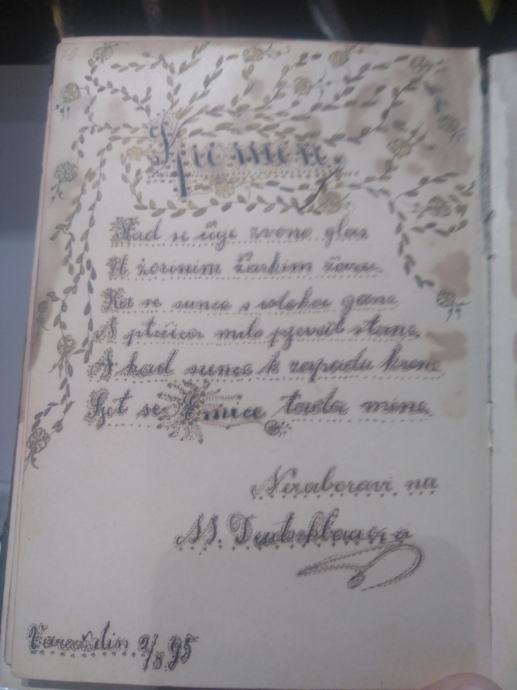 Spomen.
Kad se čuje zvono glas
U zorinim žarkim
Ka se sunce s istoka gane
A ptičica milo pjevat stane.
A kad sunce k zapadu krene
Sjet se tada mene.
Nezaboravi na
M.
Varaždin 2/8 95